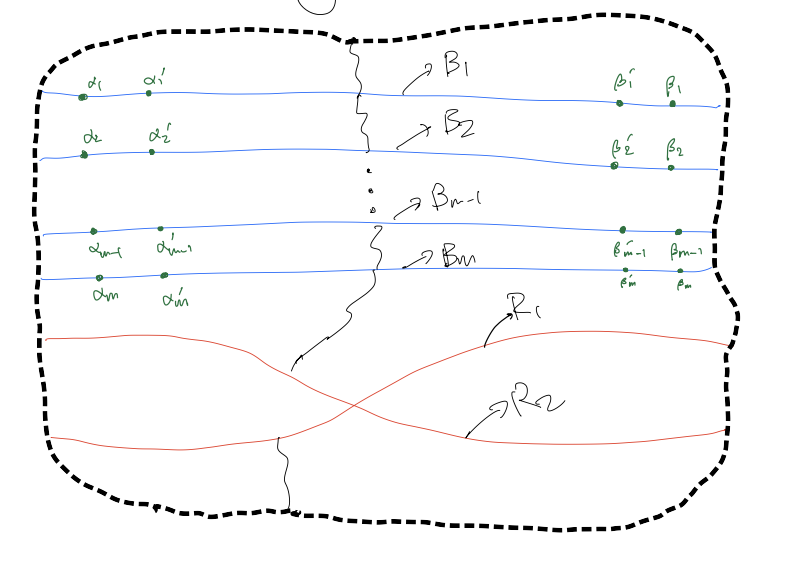 B₁
α₁ α₁′ β₁′ β₁
B₂
α₂ α₂′ β₂′ β₂
Bₘ₋₁
αₘ₋₁ α′ₘ₋₁ β′ₘ₋₁ βₘ₋₁
Bₘ
αₘ α′ₘ β′ₘ βₘ
R₁
R₂